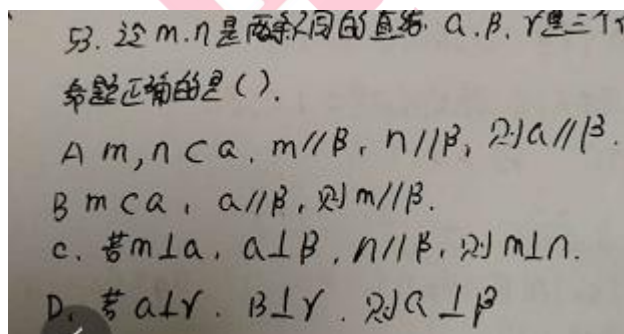 53. 设 m.n是两条不同的直线. α.β.γ是三个
命题正确的是().
A m,n⊂α, m//β, n//β, 则α//β.
B m⊂α, α//β, 则m//β.
C. 若m⊥α, α⊥β, n//β, 则m⊥n.
D. 若α⊥γ. β⊥γ. 则α⊥β